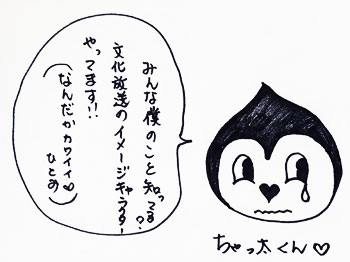 みんな僕のこと知ってる?
文化放送のイメージキャラクター
やってます!!
(なんだかカワイイ♡
ひとめ)
ちゃっ太くん♡